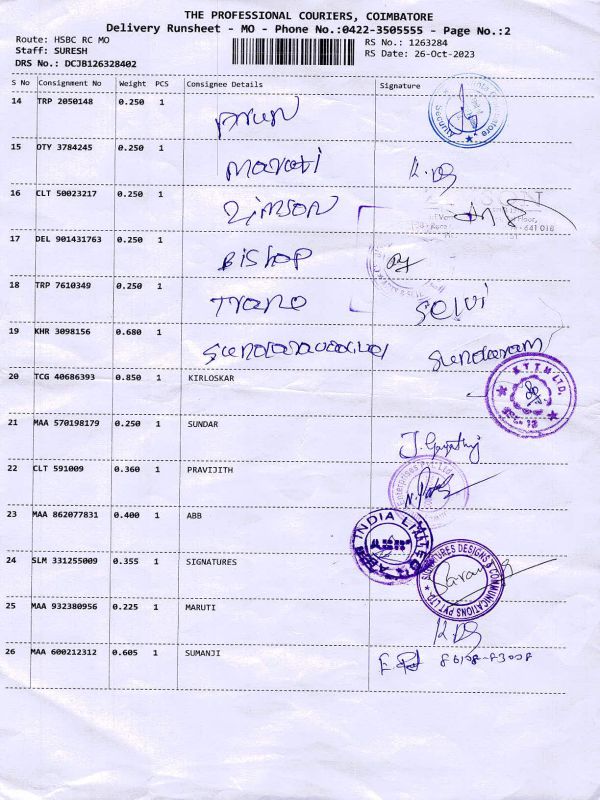 THE PROFESSIONAL COURIERS, COIMBATORE
Delivery Runsheet - MO - Phone No.:0422-3505555 - Page No.:2
Route: HSBC RC MO
RS No.: 1263284
Staff: SURESH
RS Date: 26-Oct-2023
DRS No.: DCJB126328402
S No Consignment No Weight PCS Consignee Details Signature
14 TRP 2050148 0.250 1 Arun
15 DTY 3784245 0.250 1 Maruti
16 CLT 50023217 0.250 1 Zimson
17 DEL 901431763 0.250 1 Bishop
18 TRP 7610349 0.250 1 Trane Selvi
19 KHR 3098156 0.680 1 Sundaram
20 TCG 40686393 0.850 1 KIRLOSKAR
K.T.T.M LTD.
21 MAA 570198179 0.250 1 SUNDAR J. Gayathri
22 CLT 591009 0.360 1 PRAVIJITH
Enterprises Pvt. Ltd.
23 MAA 862077831 0.400 1 ABB
ABB INDIA LIMITED
24 SLM 331255009 0.355 1 SIGNATURES
SIGNATURES DESIGNS & COMMUNICATIONS PVT LTD.
25 MAA 932380956 0.225 1 MARUTI
26 MAA 600212312 0.605 1 SUMANJI